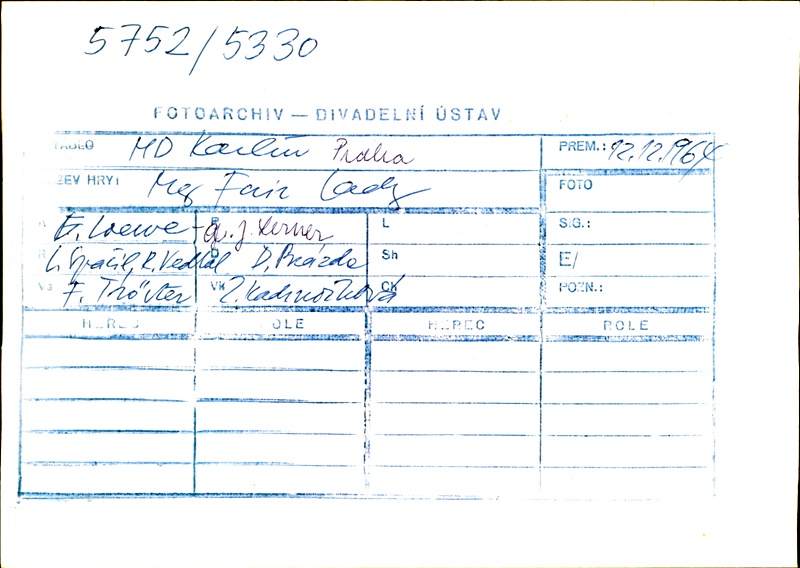 5752/5330
FOTOARCHIV — DIVADELNÍ ÚSTAV
MD Karlín Praha PREM.: 12.12.1964
ZEV HRY: My Fair Lady FOTO
F. Loewe - A. J. Lerner L S.G.:
L. Spáčil, R. Vedral D. Prázda Sh E/
F. Tröster Vk Z. Kadrnožková Ch POZN.:
HEREC ROLE HEREC ROLE